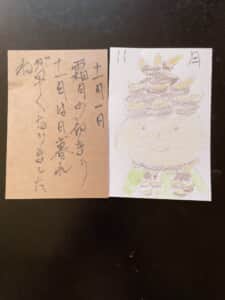 十一月一日
霜月の始まり
十一月は日暮れ
がはやくなりました
ね
11月